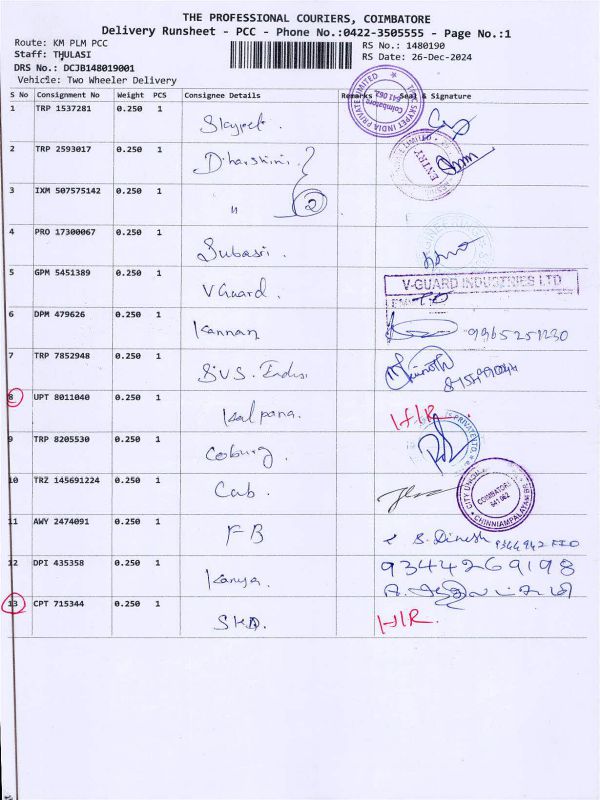 THE PROFESSIONAL COURIERS, COIMBATORE
Delivery Runsheet - PCC - Phone No.:0422-3505555 - Page No.:1
Route: KM PLM PCC
RS No.: 1480190
Staff: THULASI
RS Date: 26-Dec-2024
DRS No.: DCJB148019001
Vehicle: Two Wheeler Delivery
S No Consignment No Weight PCS Consignee Details Remarks Seal & Signature
1 TRP 1537281 0.250 1
2 TRP 2593017 0.250 1 Dharshini
ENTRY
3 IXM 507575142 0.250 1 " 2
4 PRO 17300067 0.250 1 Subasri.
5 GPM 5451389 0.250 1 V Guard.
V-GUARD INDUSTRIES LTD
6 DPM 479626 0.250 1 Kannan
7 TRP 7852948 0.250 1 S.V.S.
8 UPT 8011040 0.250 1 Kalpana.
9 TRP 8205530 0.250 1 Coburg.
10 TRZ 145691224 0.250 1 Cub.
CITY UNION COIMBATORE 641 062 CHINNIAMPALAYAM
11 AWY 2474091 0.250 1 FB S. Dinesh
12 DPI 435358 0.250 1 Kanya. 9344269198
13 CPT 715344 0.250 1 SKD. HIR.